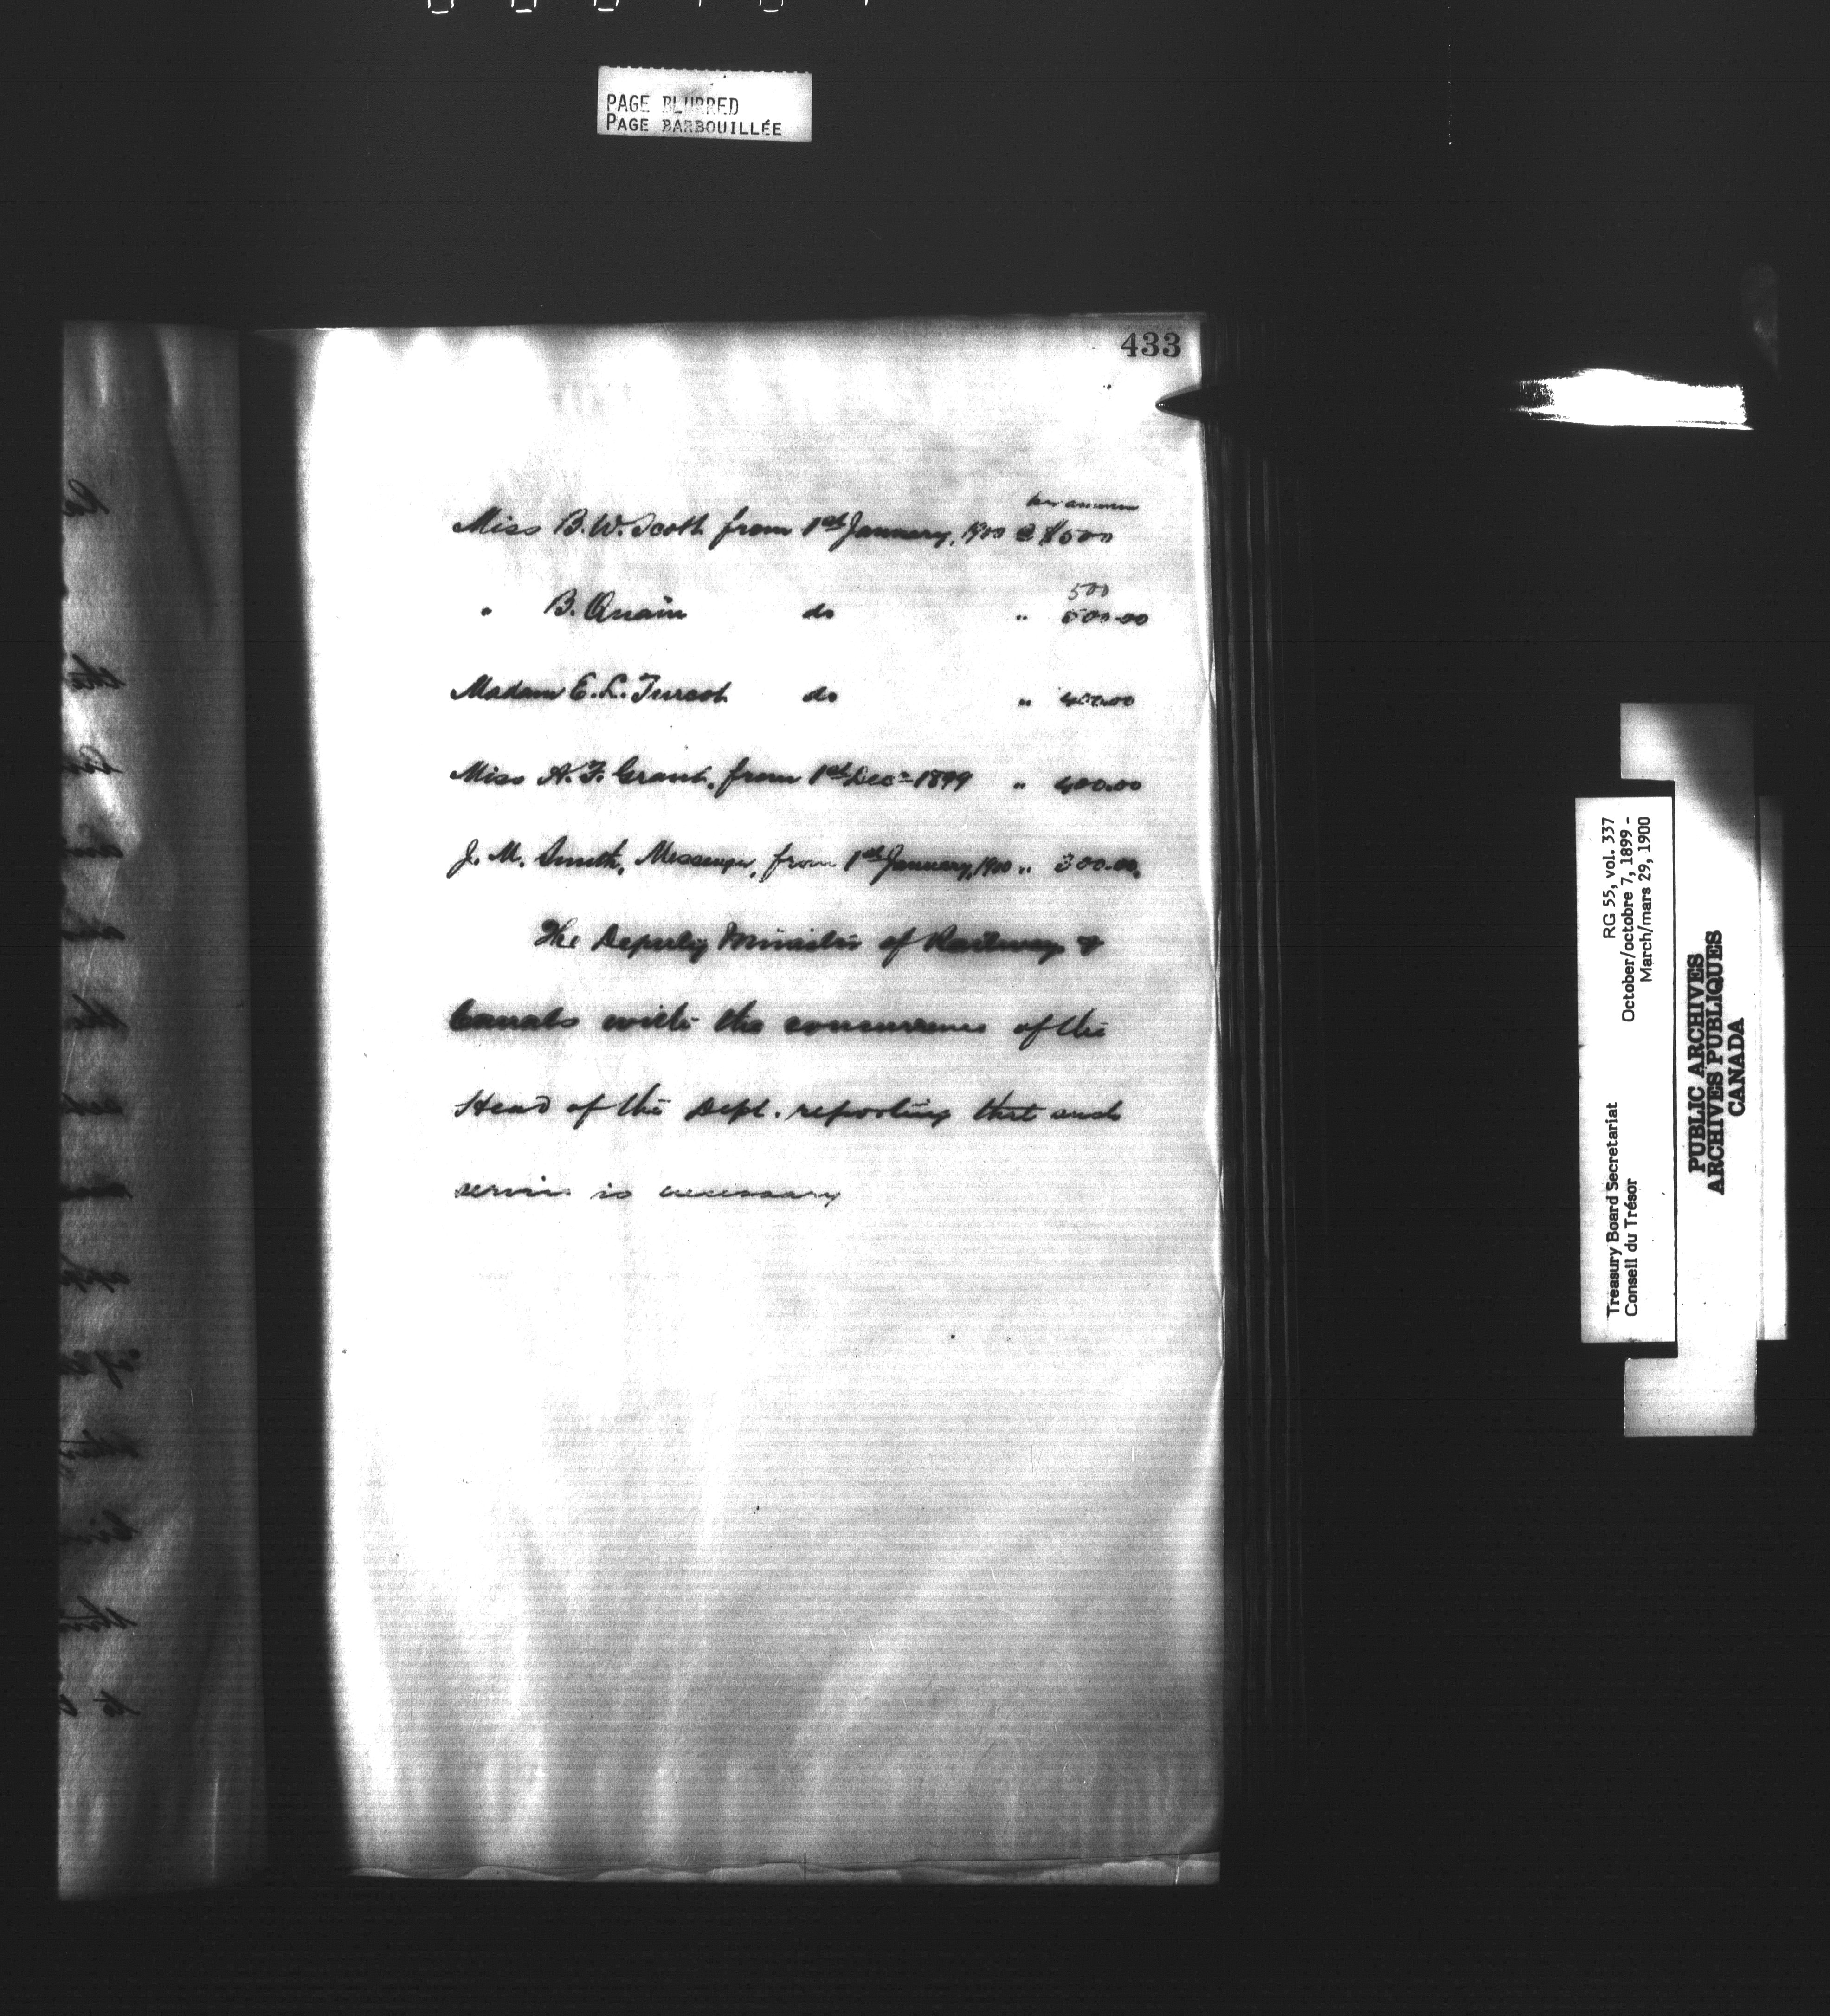 PAGE BLURRED
PAGE BARBOUILLÉE
433
per annum
Miss B. W. Scott from 1st January, 1900 @ $500
500
" B. Quain do " 500.00
Madam E. L. Turcot do " 400.00
Miss A. F. Grant, from 1st Decr 1899 " 400.00
J. M. Smith, Messenger, from 1st January, 1900 " 300.00
The Deputy Minister of Railways &
Canals with the concurrence of the
Head of the Dept. reporting that such
service is necessary
Treasury Board Secretariat
Conseil du Trésor
RG 55, vol. 337
October/octobre 7, 1899 -
March/mars 29, 1900
PUBLIC ARCHIVES
ARCHIVES PUBLIQUES
CANADA